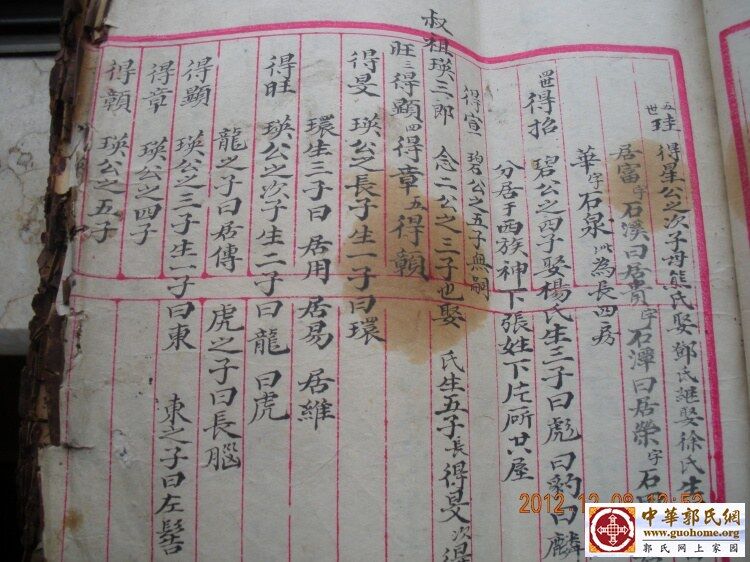 五世 珪 得星公之次子母熊氏娶鄭氏継娶徐氏生
居富字石溪曰居貴字石潭曰居榮字石
華字石泉此為長四房
四世得招 碧公之四子娶楊氏生三子曰彪曰豹曰麟
分居于西族神下張姓下片所廿屋
得宣 碧公之五子無嗣
叔祖瑛三郎 念二公之三子也娶 氏生五子長得旻次得
旺三得顯四得章五得頼
得旻 瑛公之長子生一子曰環
環生三子曰居用 居易 居維
得旺 瑛公之次子生二子曰龍 曰虎
龍之子曰居傳 虎之子曰長腦
得顯 瑛公之三子生一子曰東 東之子曰左髻
得章 瑛公之四子
得頼 瑛公之五子
2012 12 08
中華郭氏網
www.guohome.org
郭氏网上家园